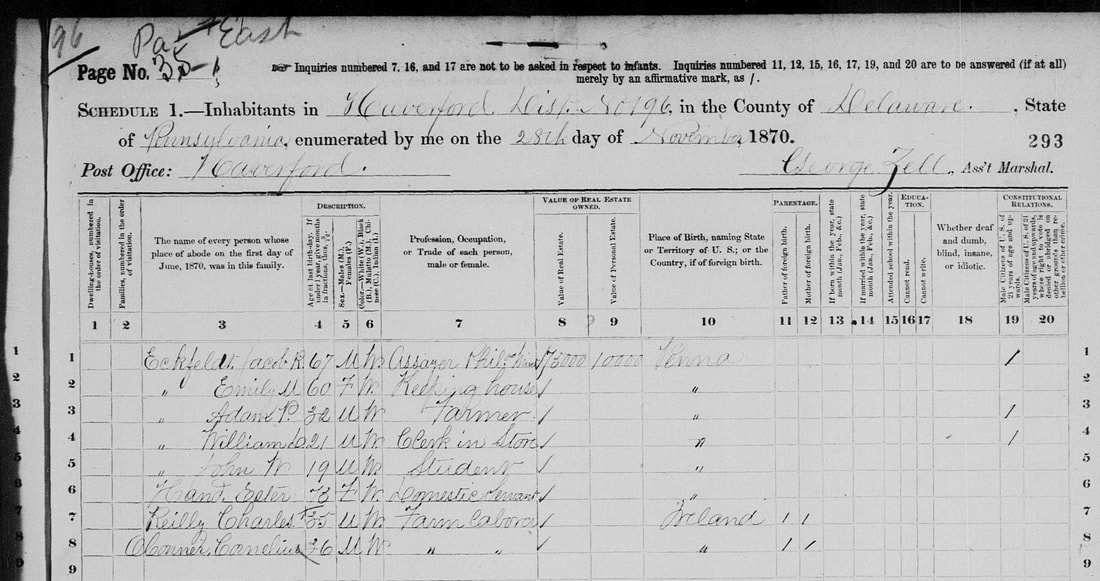 96
Part East
Page No. 35
☞ Inquiries numbered 7, 16, and 17 are not to be asked in respect to infants. Inquiries numbered 11, 12, 15, 16, 17, 19, and 20 are to be answered (if at all)
merely by an affirmative mark, as /.
SCHEDULE 1.—Inhabitants in Haverford Dist No 196, in the County of Delaware, State
of Pennsylvania, enumerated by me on the 28th day of November, 1870.
293
Post Office: Haverford. George Zell, Ass't Marshal.
Dwelling-houses, numbered in the order of visitation.
Families, numbered in the order of visitation.
The name of every person whose place of abode on the first day of June, 1870, was in this family.
DESCRIPTION.
Age at last birth-day. If under 1 year, give months in fractions, thus,
Sex.—Male (M.), Females (F.)
Color.—White (W.), Black (B.), Mulatto (M.), Chinese (C.), Indian (I.)
Profession, Occupation, or Trade of each person, male or female.
VALUE OF REAL ESTATE OWNED.
Value of Real Estate.
Value of Personal Estate.
Place of Birth, naming State or Territory of U. S.; or the Country, if of foreign birth.
PARENTAGE.
Father of foreign birth.
Mother of foreign birth.
If born within the year, state month (Jan., Feb., &c.)
If married within the year, state month (Jan., Feb., &c.)
Attended school within the year.
EDUCATION.
Cannot read.
Cannot write.
Whether deaf and dumb, blind, insane, or idiotic.
CONSTITUTIONAL RELATIONS.
Male Citizens of U. S. of 21 years of age and upwards.
Male Citizens of U. S. of 21 years of age and upwards, whose right to vote is denied or abridged on other grounds than rebellion or other crime.
1 2 3 4 5 6 7 8 9 10 11 12 13 14 15 16 17 18 19 20
1 1 Eckfeldt Jacob R. 67 M W Assayer Phila Mint 73000 10000 Penna / 1
2 2 " Emily U 60 F W Keeping house / " 2
3 3 " Adam P. 32 M W Farmer / " / 3
4 4 " William 21 M W Clerk in Store / " / 4
5 5 " John W. 19 M W Student / " 5
6 6 Hand Ester 73 F W Domestic Servant / " 6
7 7 Reilly Charles 35 M W Farm Laborer / Ireland / / 7
8 8 O Conner Cornelius 36 M W " " / " / / 8
9 9 9